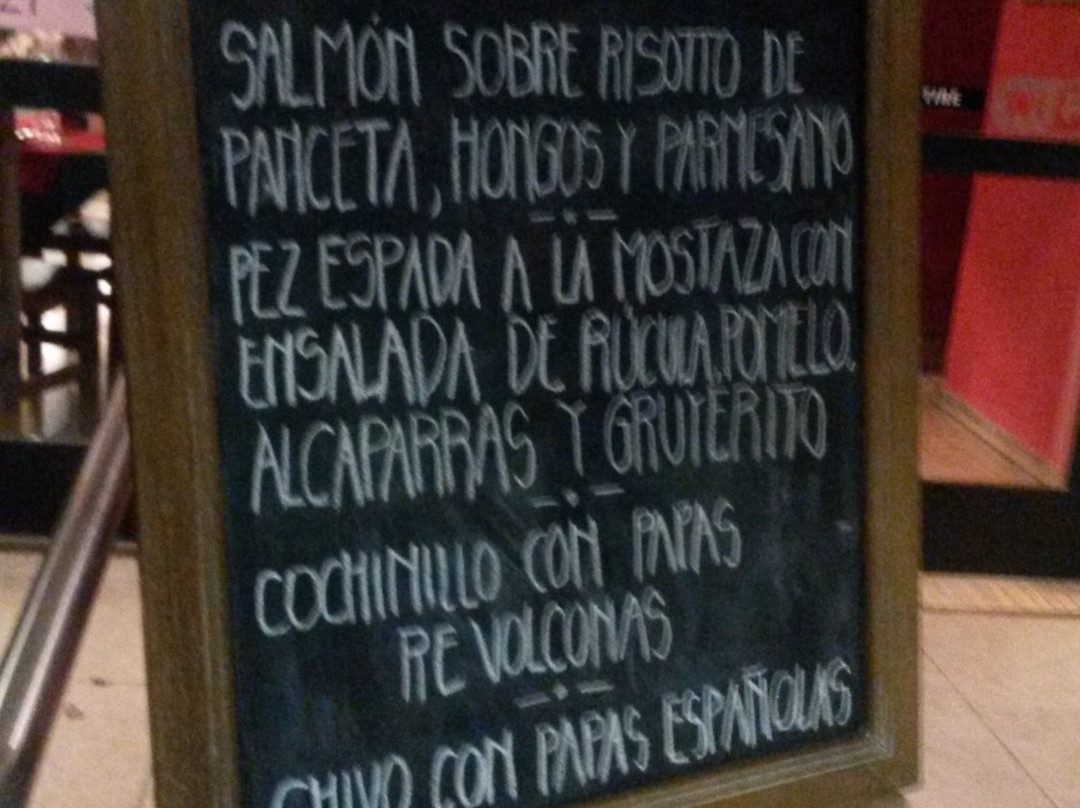 SALMÓN SOBRE RISOTTO DE
PANCETA, HONGOS Y PARMESANO
PEZ ESPADA A LA MOSTAZA CON
ENSALADA DE RÚCULA, POMELO,
ALCAPARRAS Y GRUYERITO
COCHINILLO CON PAPAS
REVOLCONAS
CHIVO CON PAPAS ESPAÑOLAS